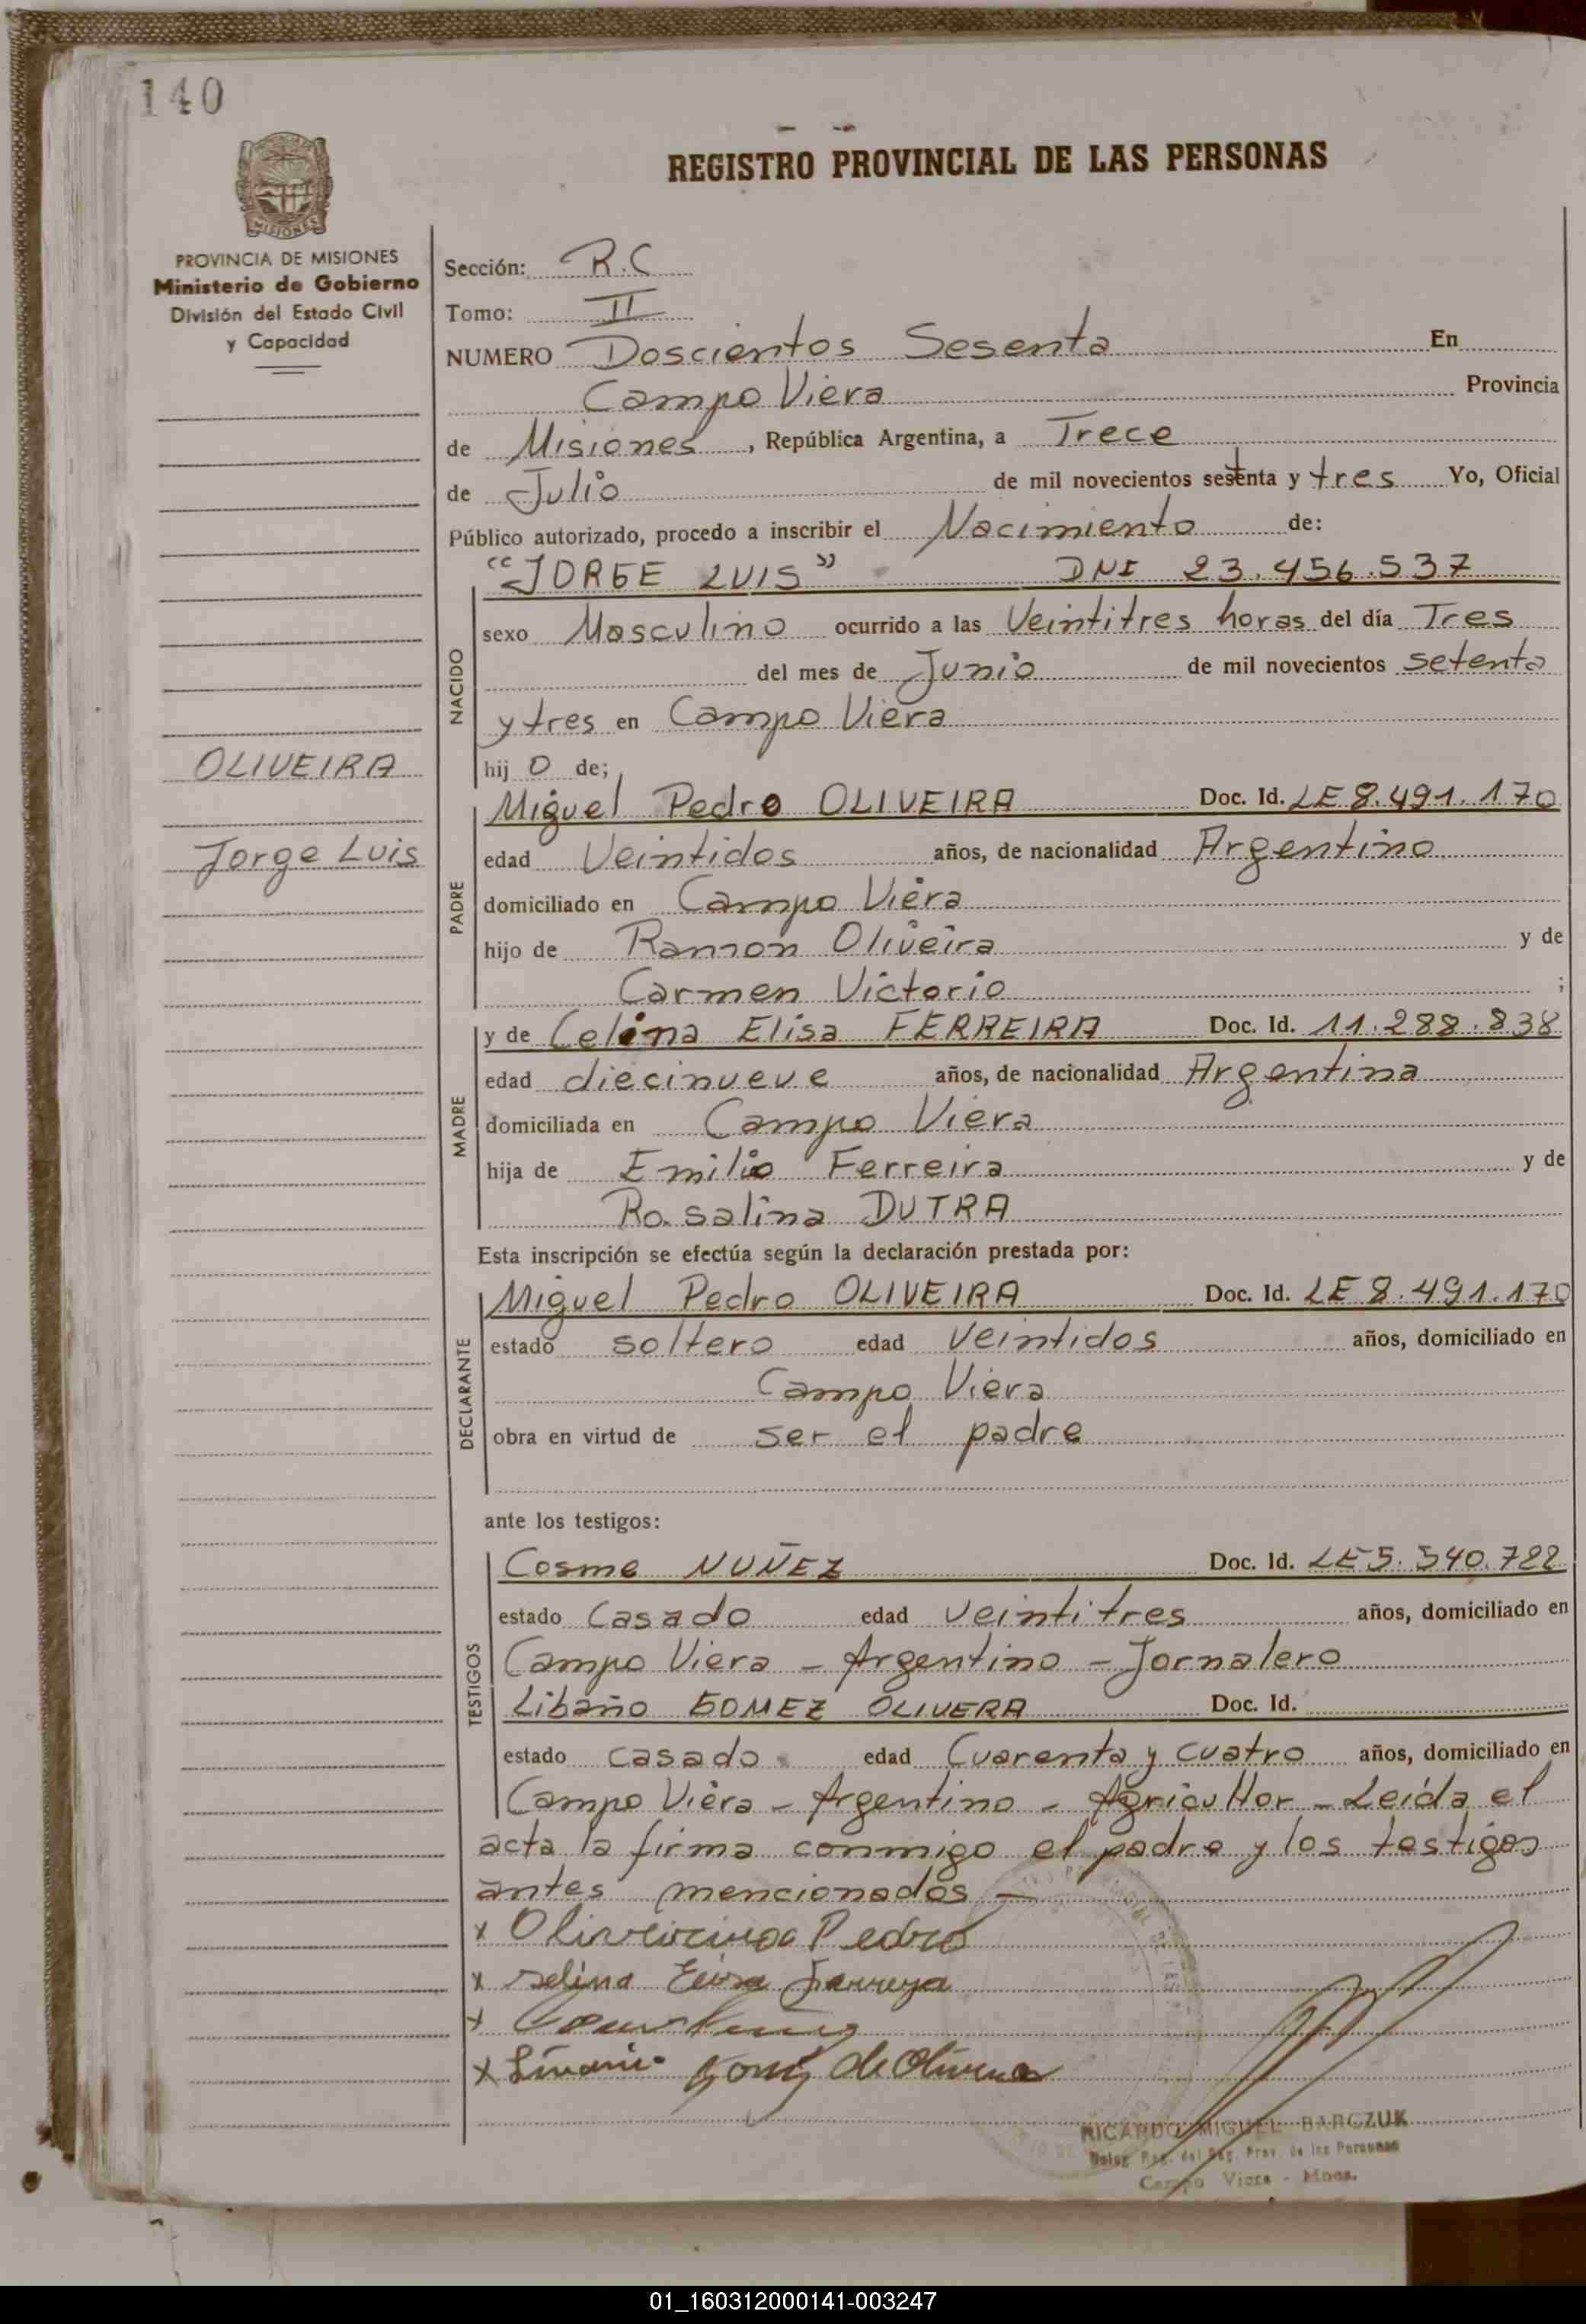 140
REGISTRO PROVINCIAL DE LAS PERSONAS
MISIONES
PROVINCIA DE MISIONES
Ministerio de Gobierno
División del Estado Civil
y Capacidad
OLIVEIRA
Jorge Luis
Sección: R.C
Tomo: II
NUMERO Doscientos Sesenta En
Campo Viera Provincia
de Misiones, República Argentina, a Trece
de Julio de mil novecientos setenta y tres Yo, Oficial
Público autorizado, procedo a inscribir el Nacimiento de:
"JORGE LUIS" DNI 23.456.537
NACIDO
sexo Masculino ocurrido a las Veintitres horas del día Tres
del mes de Junio de mil novecientos setenta
y tres en Campo Viera
hij o de;
PADRE
Miguel Pedro OLIVEIRA Doc. Id. LE 8.491.170
edad Veintidos años, de nacionalidad Argentino
domiciliado en Campo Viera
hijo de Ramon Oliveira y de
Carmen Victorio ;
MADRE
y de Celina Elisa FERREIRA Doc. Id. 11.288.838
edad diecinueve años, de nacionalidad Argentina
domiciliada en Campo Viera
hija de Emilio Ferreira y de
Rosalina DUTRA
Esta inscripción se efectúa según la declaración prestada por:
DECLARANTE
Miguel Pedro OLIVEIRA Doc. Id. LE 8.491.170
estado soltero edad Veintidos años, domiciliado en
Campo Viera
obra en virtud de ser el padre
ante los testigos:
TESTIGOS
Cosme NUÑEZ Doc. Id. LE 5.540.722
estado Casado edad veintitres años, domiciliado en
Campo Viera - Argentino - Jornalero
Libaño GOMEZ OLIVERA Doc. Id.
estado casado edad Cuarenta y cuatro años, domiciliado en
Campo Viera - Argentino - Agricultor - Leída el
acta la firma conmigo el padre y los testigos
antes mencionados -
x Pedro
x selina Elisa Ferreyra
x
x gomez de Olivera
RICARDO MIGUEL BARCZUK
Deleg. Reg. del Reg. Prov. de las Personas
Campo Viera - Mnes.
01_160312000141-003247